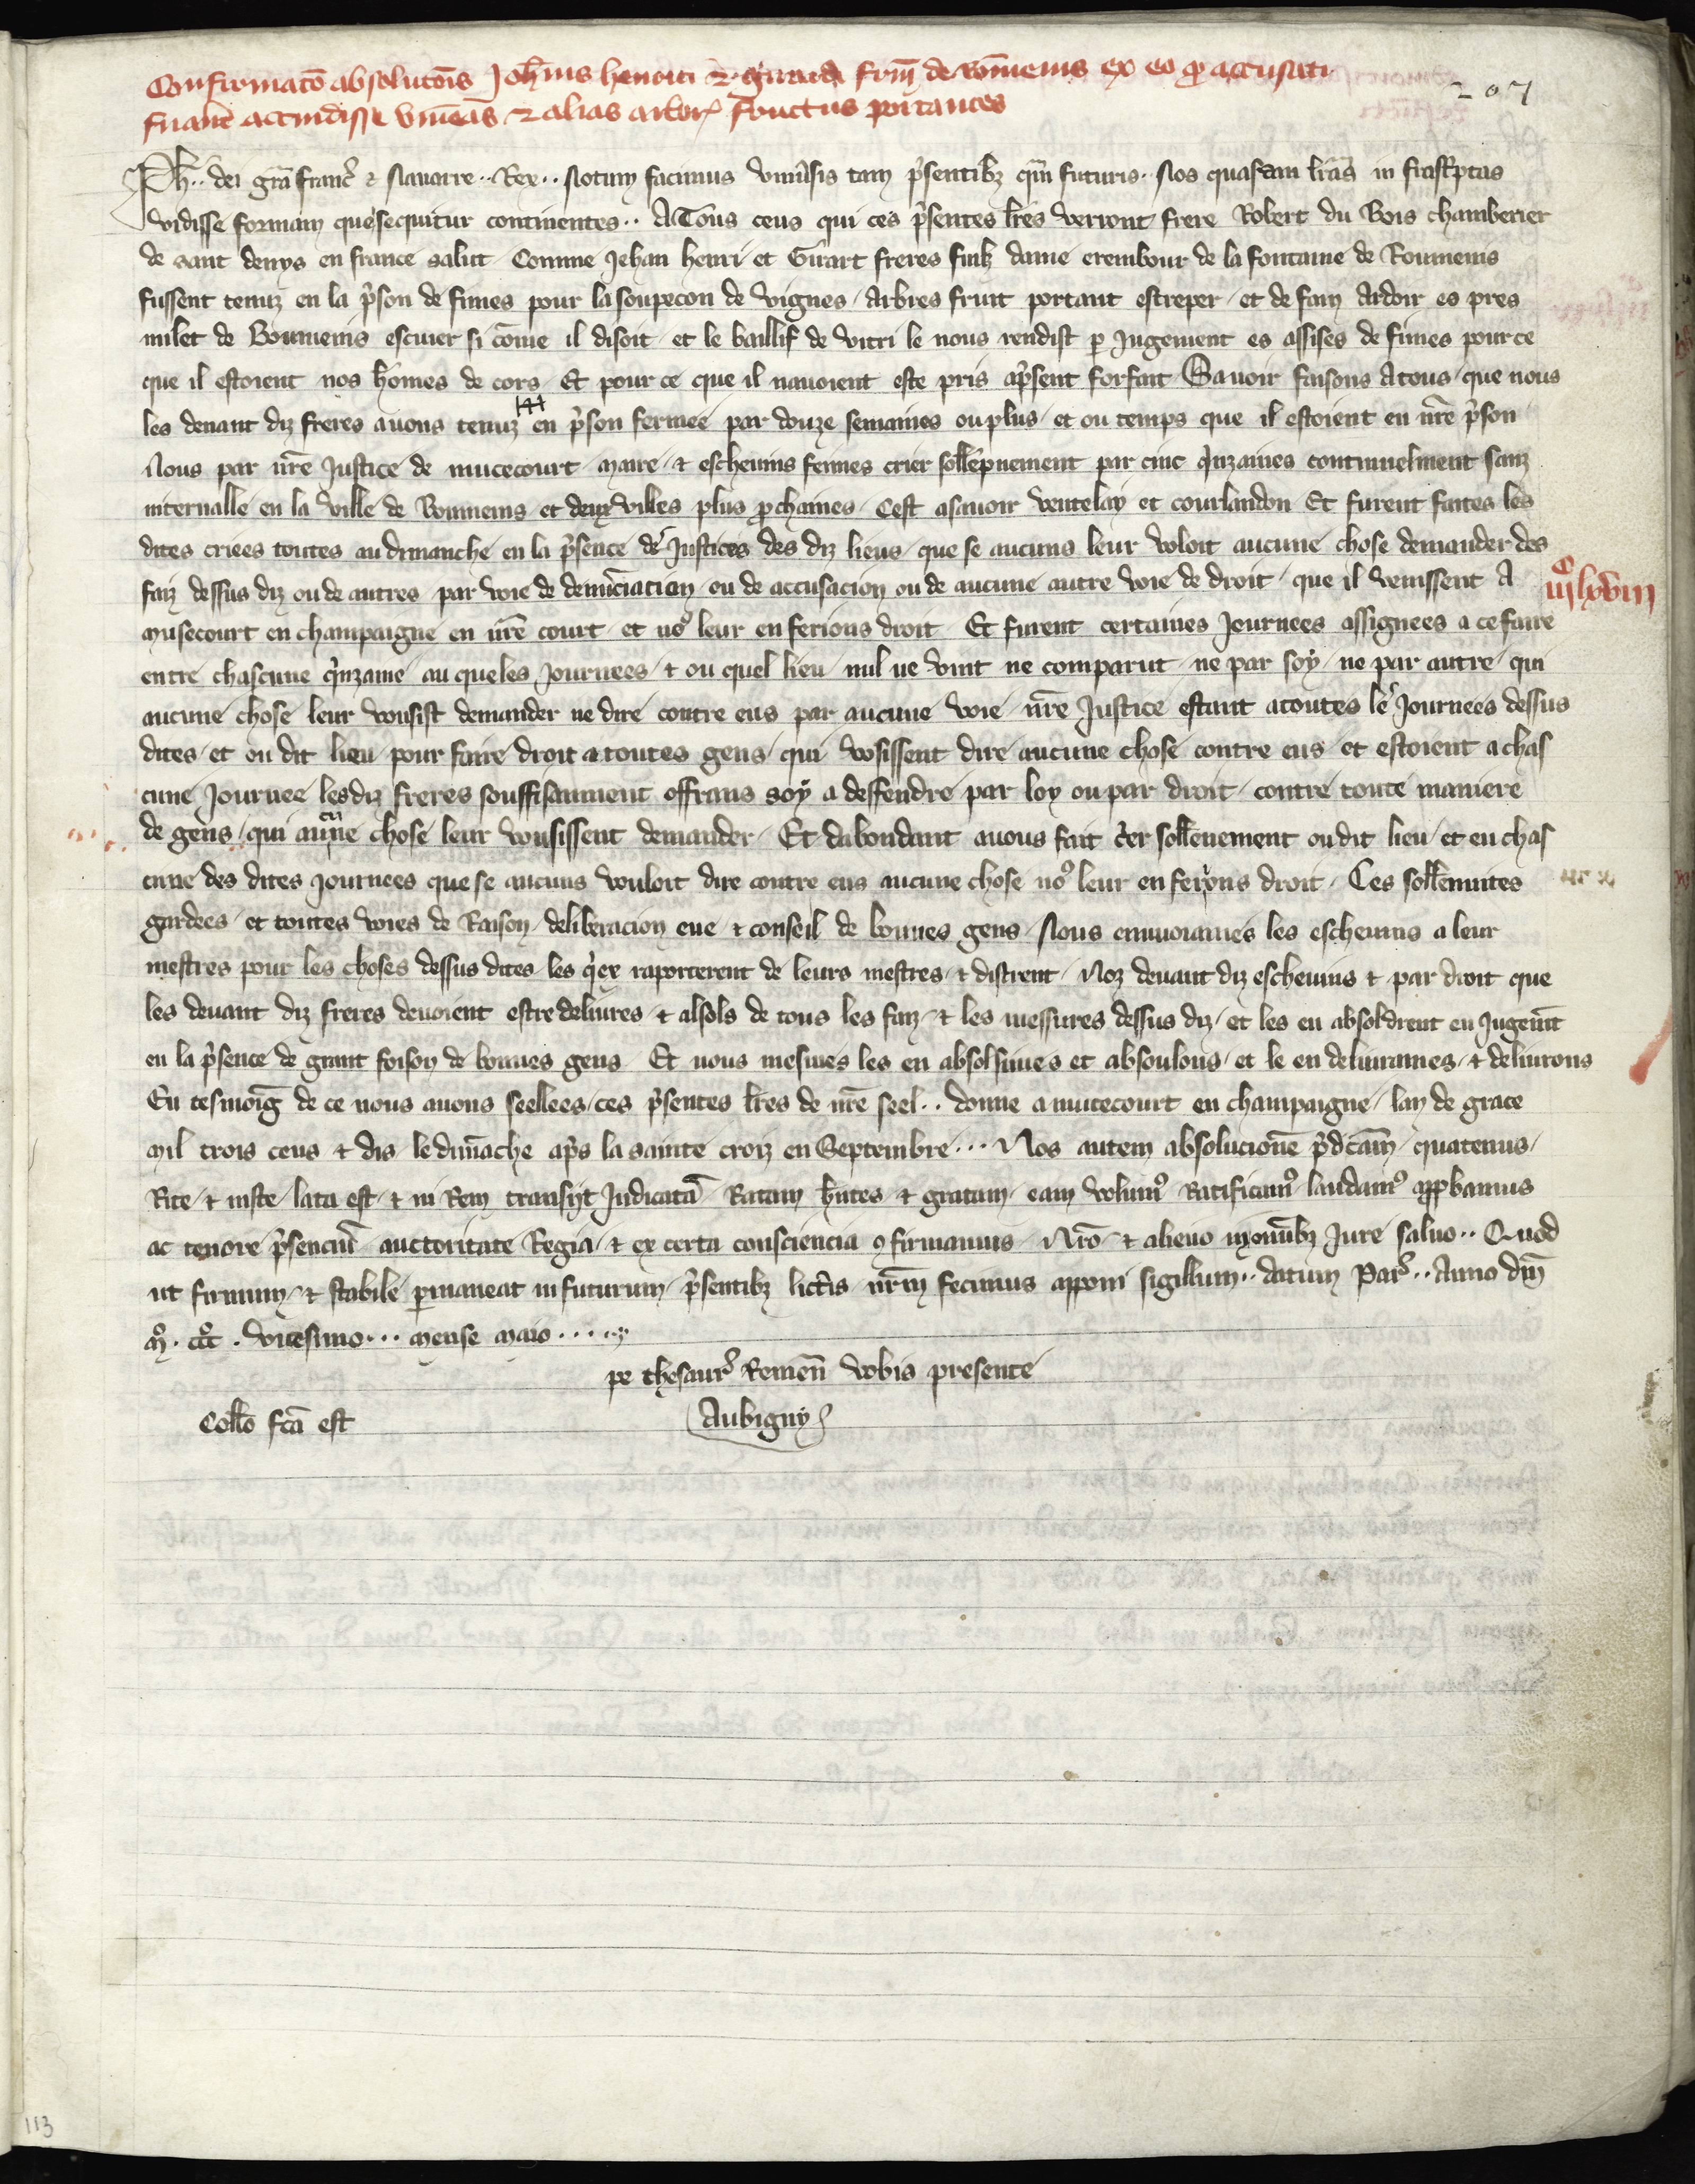 Confirmatō absolutōis Joh̄nis henrici & girardi fr̄m de Rōmenis ex eo q̄ accusati
207
fuānt accendisse vineas & alias arbor̄ fructus portantes
Ph̄.. dei grā franc̄ & Nauarre.. Rex.. Notum facimus vniūsis tam p̄sentibȝ qm̄ futuris.. Nos quasdam lr̄as in frasc̄ptas
vidisse formam que sequitur continentes.. A Tous ceus qui ces p̄sentes lr̄es verront frere Robert du Bois chamberier
de sant denys en france salut. Comme Jehan henri et Girart freres fiulz dame erembour de la fontaine de Roumenis
fussent tenuz en la p̄son de fimes pour la soupecon de vignes / Arbres fruit portant estreper / et de fain Ardoir es pres
milet de Roumenis escuier si cōme il disoit / et le baillif de vitri le nous rendist p̱ Jugement es assises de fimes pour ce
que il estoient nos hōmes de cors / Et pour ce que il nauoient este pris ap̄sent forfait / Sauoir faisons A tous / que nous
les deuant diz freres auons tenuz en p̄son fermee par douze semaines ou plus / et ou temps que il estoient en nr̄e p̄son
Nous par nr̄e Justice de mucecourt / maire / & escheuins feimes crier sollēpnement par cinc q̄nzaines continuelment sanz
interualle en la ville de Roumenis / et deux villes plus p̱chaines / Cest asauoir ventelay et courlandon Et furent faites les
dites criees toutes au dimanche en la p̄sence de Justices des diz lieus / que se aucuns leur voloit aucune chose demander des
faiz dessus diz ou de autres par voie de denūciacion / ou de accusacion ou de aucune autre voie de droit / que il venissent A
iijᶜ lxviii
musecourt en champaigne en nr̄e court / et no᷒ leur en ferions droit Et furent certaines Journees assignees a ce faire
entre chascune q̄nzaine / au queles Journees / & ou quel lieu / nul ne vint ne comparut / ne par soy / ne par autre / qui
aucune chose leur vousist demander ne dire contre eus par aucune voie / nr̄e Justice estant atoutes les Journees dessus
dites / et ou dit lieu / pour faire droit a toutes gens / qui vosissent dire aucune chose contre eus / et estoient a chas
cune Journee lesdiz freres souffisanment offrans soy a deffendre par loy ou par droit / contre toute maniere
de gens / qui aucune chose leur vousissent demander / Et dabondant auons fait c̄er sollēnement ou dit lieu / et en chas
cune des dites Journees que se aucuns vouloit dire contre eus aucune chose no᷒ leur en ferions droit / Ces sollēnnites
gardees / et toutes voies de Raison / deliberacion eue & conseil de bonnes gens / Nous enuoiames les escheuins a leur
mestres pour les choses dessus dites / les q̄ex raporterent de leurs mestres / & distrent / Noz deuant diz escheuins & par droit que
les deuant diz freres deuoient estre deliures & absols de tous les faiz / & les messures dessus diz / et les en absoldrent en Jugemēt
en la p̄sence de grant foison de bonnes gens Et nous mesmes les en absolsimes et absoulons / et le en deliurames / & deliurons
En tesmoiḡ de ce nous auons seellees / ces p̄sentes lr̄es de nr̄e seel.. donne a mucecourt en champaigne / lan de grace
mil trois cens & dis le dimāche ap̄s la sainte croiz en Septembre... Nos autem absolucionē p̄dictām / quatenus /
Rite / & iuste / lata est / & in Rem transijt Judicatā Ratam hn̄tes & gratam / eam volum᷒ Ratificam᷒ laudam᷒ app̱bamus
ac tenore p̄senciū auctoritate Regia / & ex certa consciencia ꝯfirmamus / Nr̄o / & alieno inomībȝ Jure saluo.. Quod
ut firmum / & stabile p̱maneat in futurum / p̄sentibȝ litt̄is nr̄m fecimus apponi sigillum.. datum Par᷒.. Anno dn̄i
M᷒. ccc᷒. vicesimo... mense maio....
pe thesaur᷒ Remeñ vobis presente
Collō fcā est
Aubigny
113